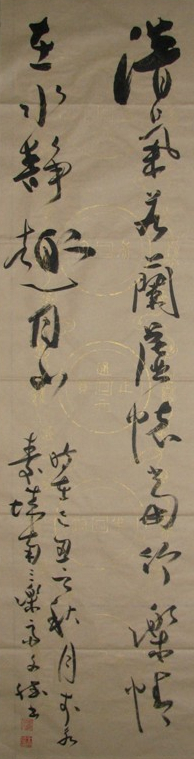 清氣若蘭虛懷當竹樂情
在水靜趣同山
時在己丑之秋月